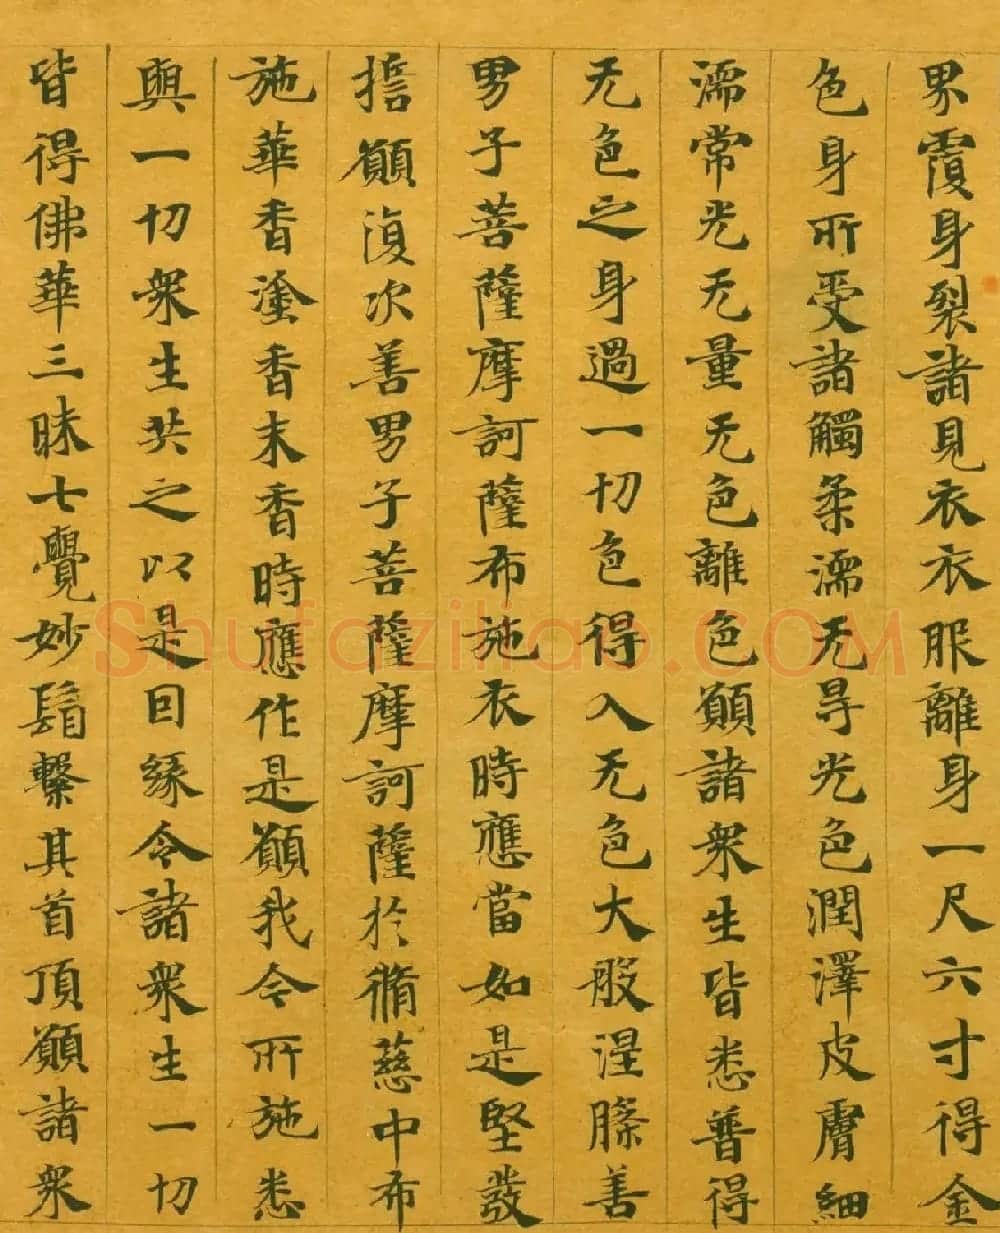 界覆身裂諸見衣衣服離身一尺六寸得金
色身所受諸觸柔濡无㝵光色潤澤皮膚細
濡常光无量无色離色願諸衆生皆悉普得
无色之身過一切色得入无色大般涅槃善
男子菩薩摩訶薩布施衣時應當如是堅發
誓願復次善男子菩薩摩訶薩於脩慈中布
施華香塗香末香時應作是願我今所施悉
與一切衆生共之以是因緣令諸衆生一切
皆得佛華三昧七覺妙鬘繫其首頂願諸衆
Shufaziliao.COM